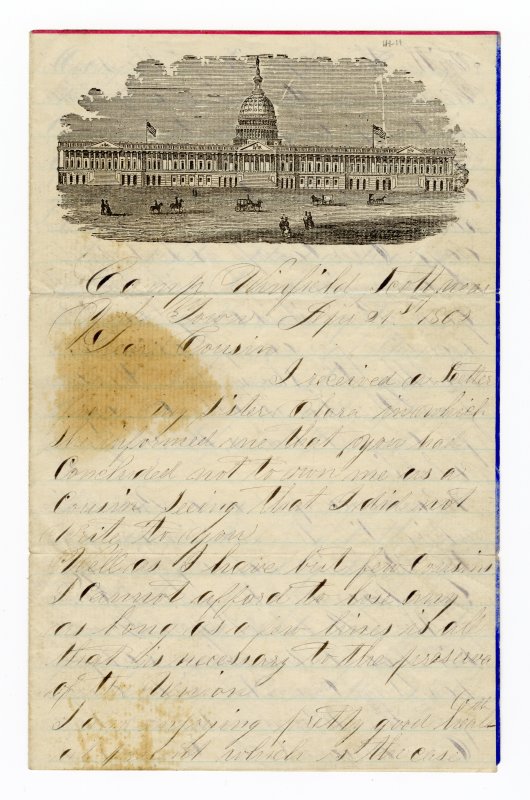 Camp Winfield Scott near
York Town Apr 21st 1862
Dear Cousin
I received a letter
from my sister Clara in which
she informed me that you had
concluded not to own me as a
Cousin seeing that I did not
write to you.
Well as I have but few Cousins
I cannot afford to lose any
as long as a few lines is all
that is necessary to the preserva
of the Union
I am enjoying pretty good health
at present which is the case